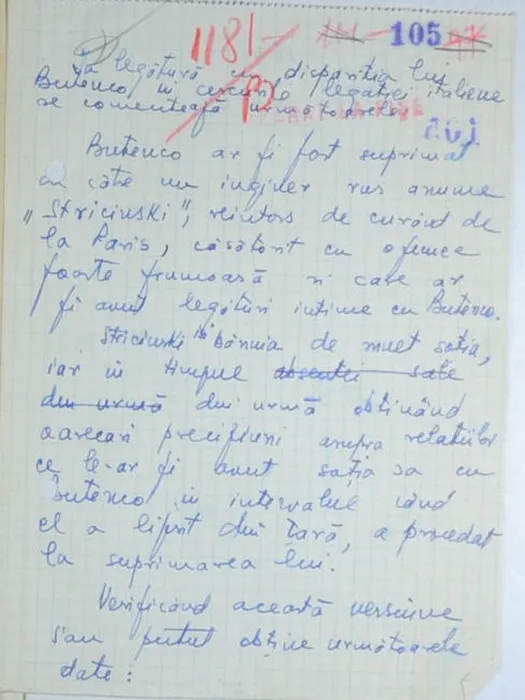 1181-
105
În legătură cu dispariția lui
Butenco, în cercurile legației italiene
se comentează următoarele:
201
Butenco ar fi fost suprimat
de către un inginer rus anume
"Striciuski", reîntors de curând de
la Paris, căsătorit cu o femee
foarte frumoasă și care ar
fi avut legături intime cu Butenco.
Striciuski își bănuia de mult soția,
iar în timpul absentei sale
din urmă din urmă obținând
oarecari precițiuni asupra relațiilor
ce le-ar fi avut soția sa cu
Butenco în intervalul când
el a lipsit din țară, a procedat
la suprimarea lui.
Verificând această versiune
s'au putut obține următoarele
date: